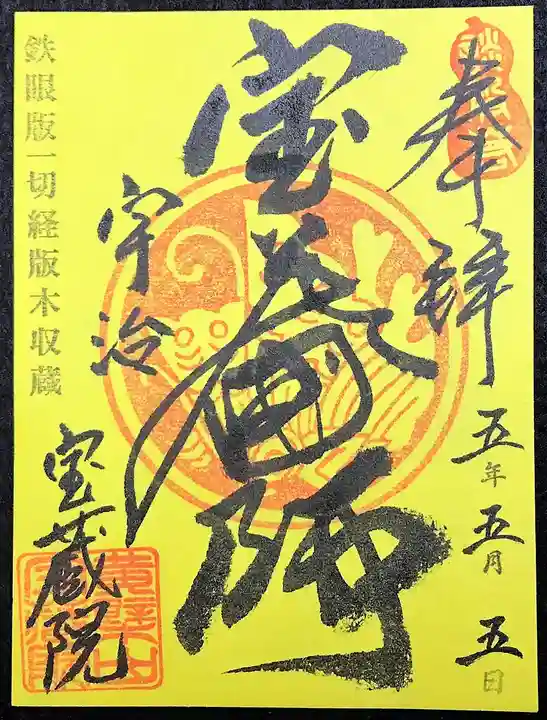 奉拝
五年五月五日
宝蔵国師
宇治
宝蔵院
鉄眼版一切経版木収蔵